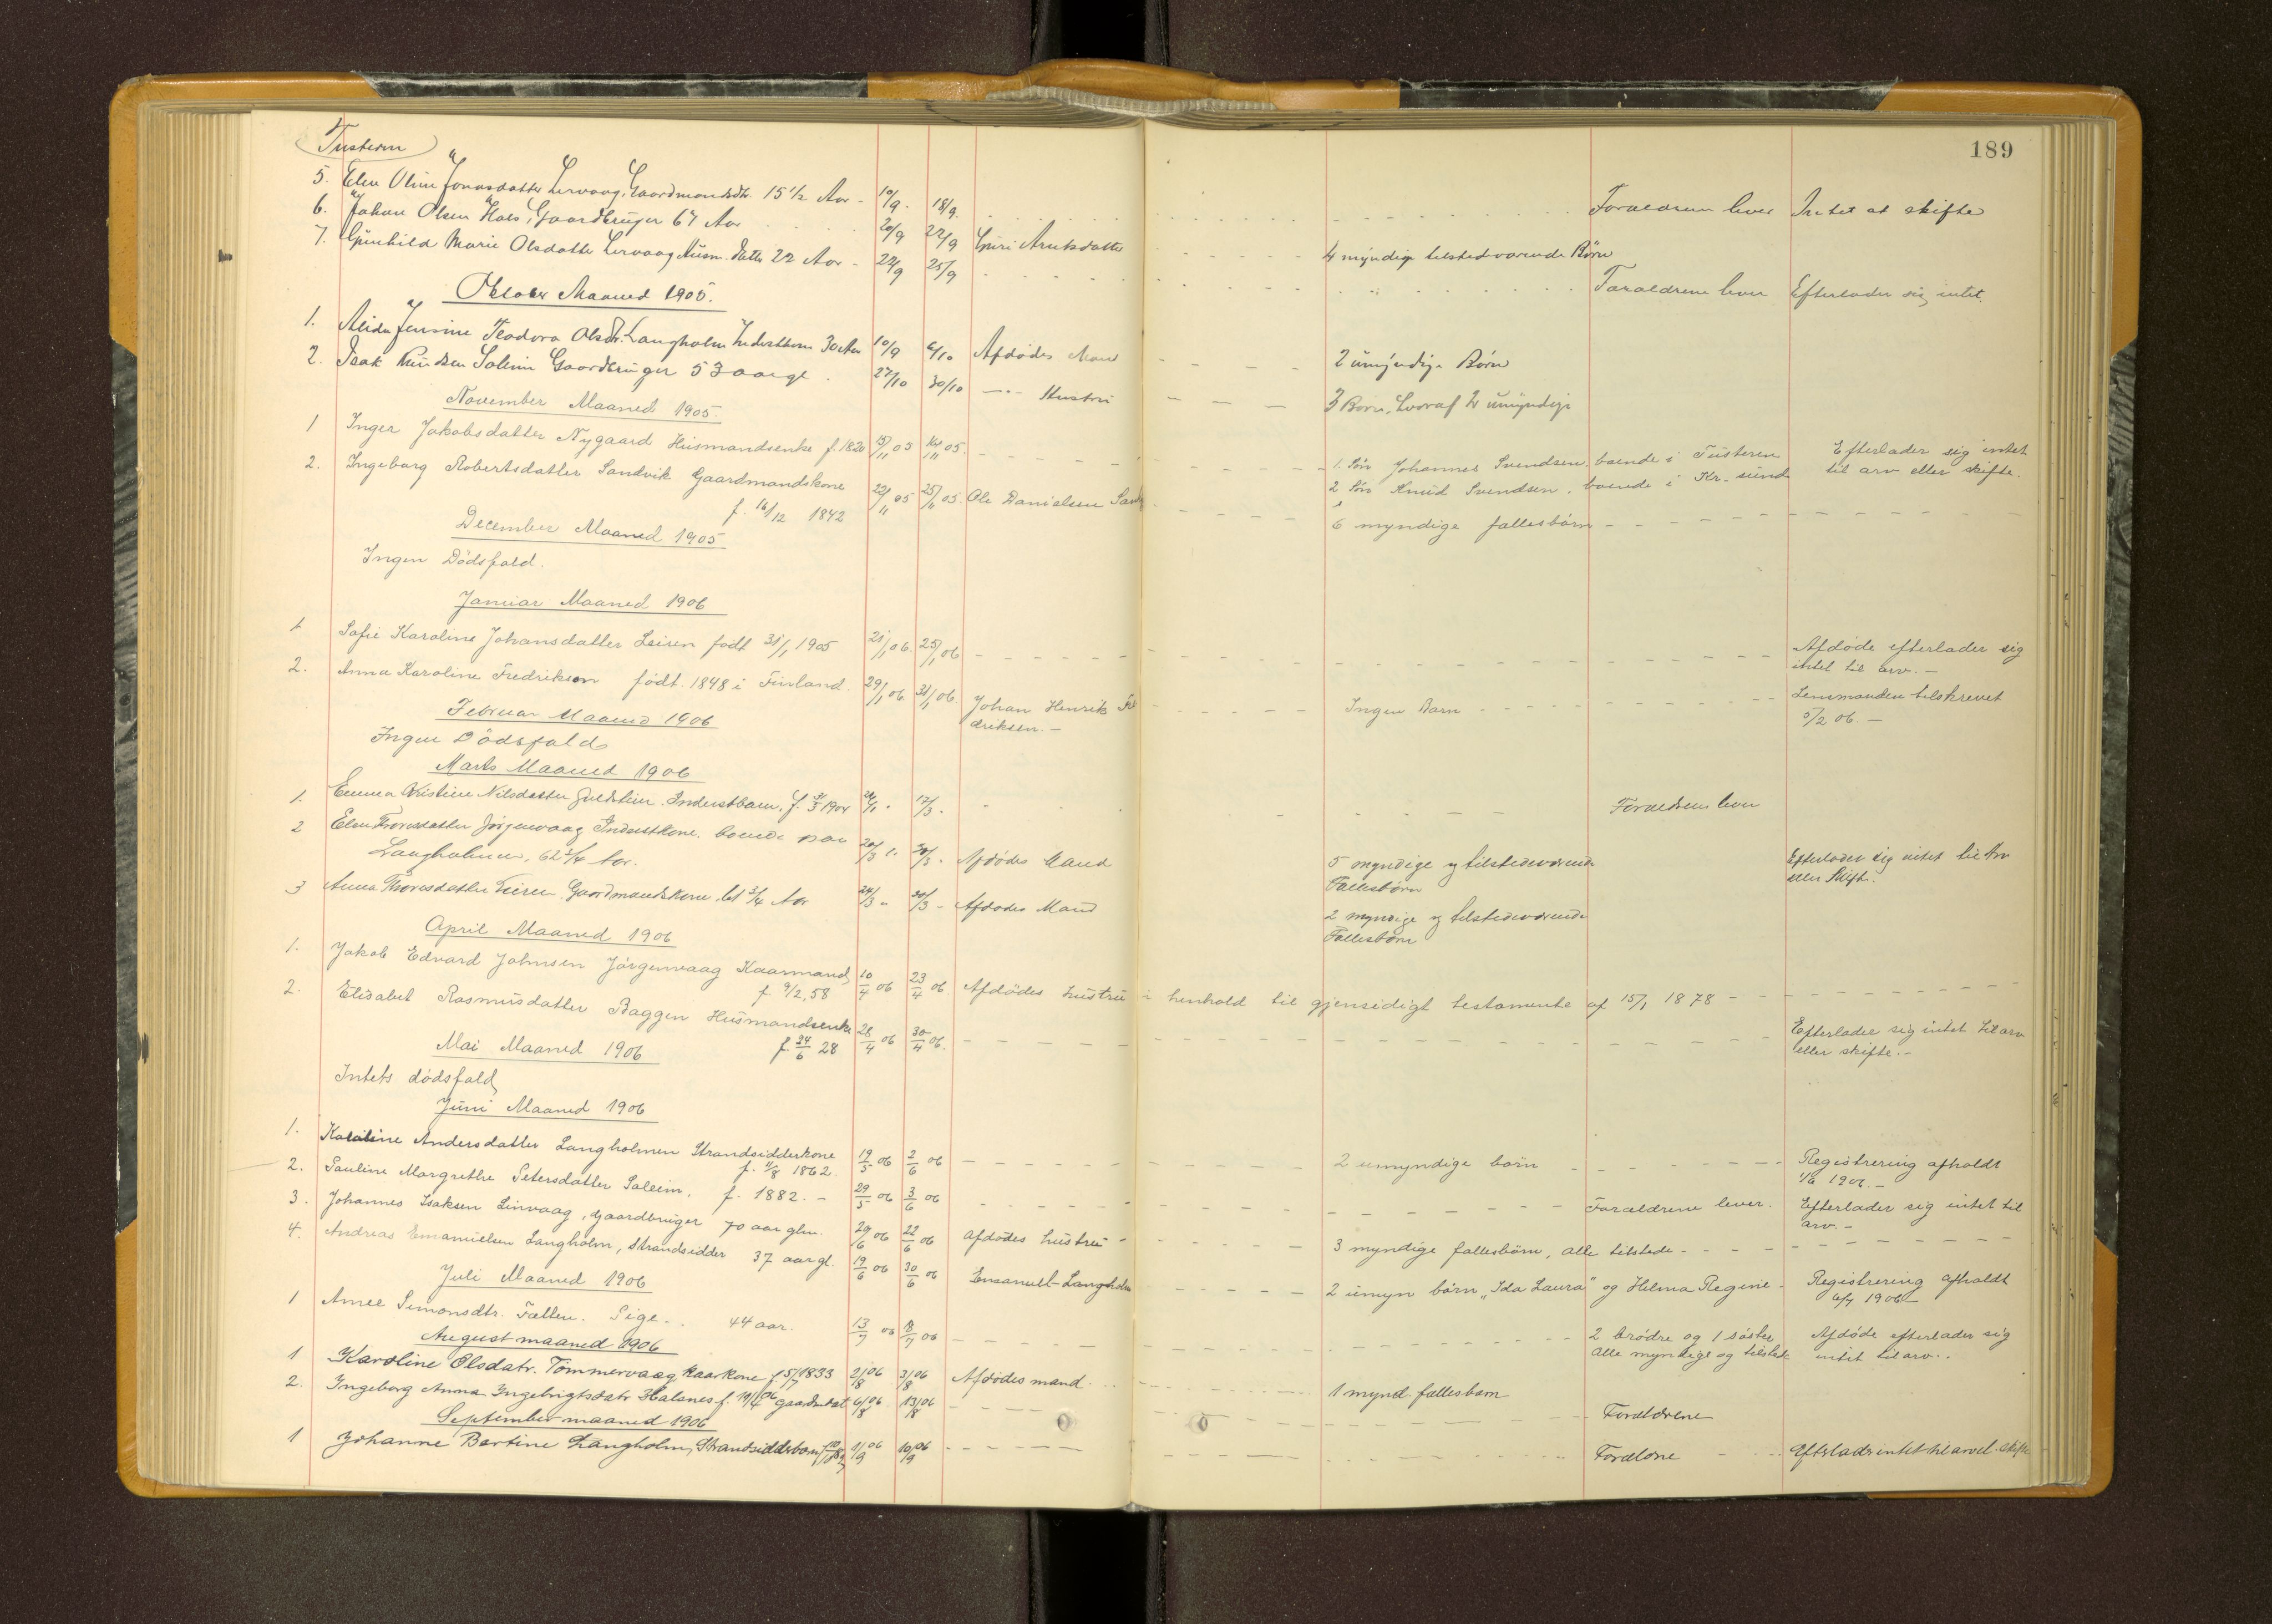 189
Tusteren
5. Elen Oline Jonasdatter Lervaag, Gaardmandsdtr. 15 1/2 Aar - 10/9. 18/9. Forældrene lever Intet at skifte
6. Johan Olsen Hals, Gaardbruger 67 Aar 20/9 22/9 Guri Arntsdatter 4 myndige tilstedeværende Børn
7. Gunhild Marie Olsdatter Lervaag Husm. datter 22 Aar - 22/9 25/9 Forældrene lever Efterlader sig intet.
Oktober Maaned 1905.
1. Alida Jensine Teodora Olsdtr. Langholm Inderstkone 30 Aar 10/9 6/10 Afdødes Mand - - - 2 umyndige Børn
2. Isak Knudsen Soleim Gaardbruger 53 aargl. 27/10 30/10 —"— Hustru - - - 3 Børn, hvoraf 2 umyndige
November Maaned 1905.
1 Inger Jakobsdatter Nygaard Husmandsenke f. 1820 13/11 05 14/11 05. 1. Søn Johannes Svendsen, boende i Tusteren Efterlader sig intet
2 Søn Knud Svendsen, boende i Kr-sund til arv eller skifte.
2. Ingeborg Robertsdatter Sandvik Gaardmandskone 22/11 05 25/11 05. Ole Danielsen 6 myndige fællesbørn
f. 16/12 1842
December Maaned 1905
Ingen Dödsfald.
Januar Maaned 1906
1 Sofie Karoline Johansdatter Leiren født 31/1 1905 21/1 06. 25/1 06 Afdøde efterlader sig
intet til arv. -
2. Anna Karoline Fredriksen født 1848 i Finland. 29/1 06. 31/1 06. Johan Henrik Fre Ingen Barn Lensmanden tilskrevet
driksen. - 5/2 06. -
Februar Maaned 1906
Ingen Dödsfald
Marts Maaned 1906
1. Emma Kristine Nilsdatter Inderstbarn, f. 1904 17/3. Forældrene lever
2 Elen Thoresdatter Jørgenvaag Inderstkone. boende paa 20/3 " 30/3 " Afdødes Mand 5 myndige og tilstedeværende Efterlader sig intet til Arv
Langholmen, 62 3/4 Aar. Fællesbørn eller Skifte.
3 Anna Thoresdatter Leiren Gaardmandskone, 61 3/4 Aar 24/3 " 30/3 - Afdødes Mand 2 myndige og tilstedeværende
Fællesbørn
April Maaned 1906
1. Jakob Edvard Johnsen Jørgenvaag Kaarmand 10/4 06 23/4 06 Afdødes hustru i henhold til gjensidigt testamente af 15/1 1878
f. 9/2, 58
2. Elisabet Rasmusdatter Baggen Husmandsenke 28/4 06 30/4 06. Efterlader sig intet til arv
f. 24/6 28 eller skifte. -
Mai Maaned 1906
Intets dødsfald
Juni Maaned 1906
1. Karoline Andersdatter Langholmen Strandsidderkone 19/5 06 2/6 06 2 umyndige børn Registrering afholdt
f. 4/8 1862. 1/6 1906. -
2. Pauline Margrethe Petersdatter Saleim, f. 1882. - 29/5 06 3/6 06 Forældrene lever. Efterlader sig intet til
arv. -
3. Johannes Isaksen Linvaag, Gaardbruger 70 aar glm. 06 22/6 06 Afdødes hustru 3 myndige fællesbørn, alle tilstede
4. Andreas Emanuelsen Langholm, Strandsidder 37 aar gl. 19/6 06 30/6 06 Emanuel Langholm 2 umyn børn „Ida Laura" og Hilma Regine Registrering afholdt
6/7 1906
Juli Maaned 1906
1 Anne Simonsdtr. Fætten. Pige. . 44 aar. 13/7 06 06 2 brødre og 1 søster Afdøde efterlader sig
alle myndige og tilstede intet til arv. .
August maaned 1906
1 Karoline Olsdatr. Tömmervaag, kaarkone f. 5/7 1833 2/8 06 3/8 06 Afdødes mand 1 mynd. fællesbarn
2. Ingeborg Anna Ingebrigtsdatr Halsnes f. 19/4 06 gaardm.dat. 6/8 06 13/8 06 Forældrene
September maaned 1906
1 Johanne Bertine Langholm, Strandsidderbarn 1/9 06 10/9 06 Forældrene Efterlader intet til arv el. skifte